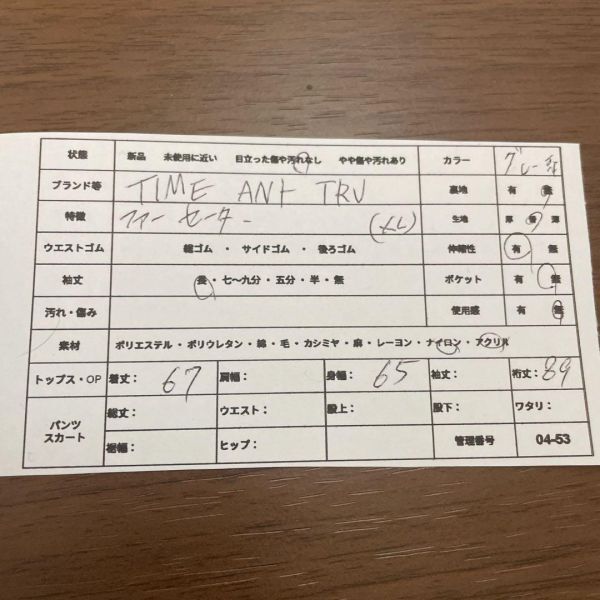 状態 新品 未使用に近い 目立った傷や汚れなし やや傷や汚れあり カラー グレー系
ブランド等 TIME ANT TRU 裏地 有 無
特徴 ファーセーター (XL) 生地 厚 普 薄
ウエストゴム 総ゴム ・ サイドゴム ・ 後ろゴム 伸縮性 有 無
袖丈 長・七〜九分・五分・半・無 ポケット 有 無
汚れ・傷み 使用感 有 無
素材 ポリエステル・ポリウレタン・綿・毛・カシミヤ・麻・レーヨン・ナイロン・アクリル
トップス・OP 着丈: 67 肩幅: 身幅: 65 袖丈: 裄丈: 89
パンツ スカート 総丈: ウエスト: 股上: 股下: ワタリ:
裾幅: ヒップ: 管理番号 04-53